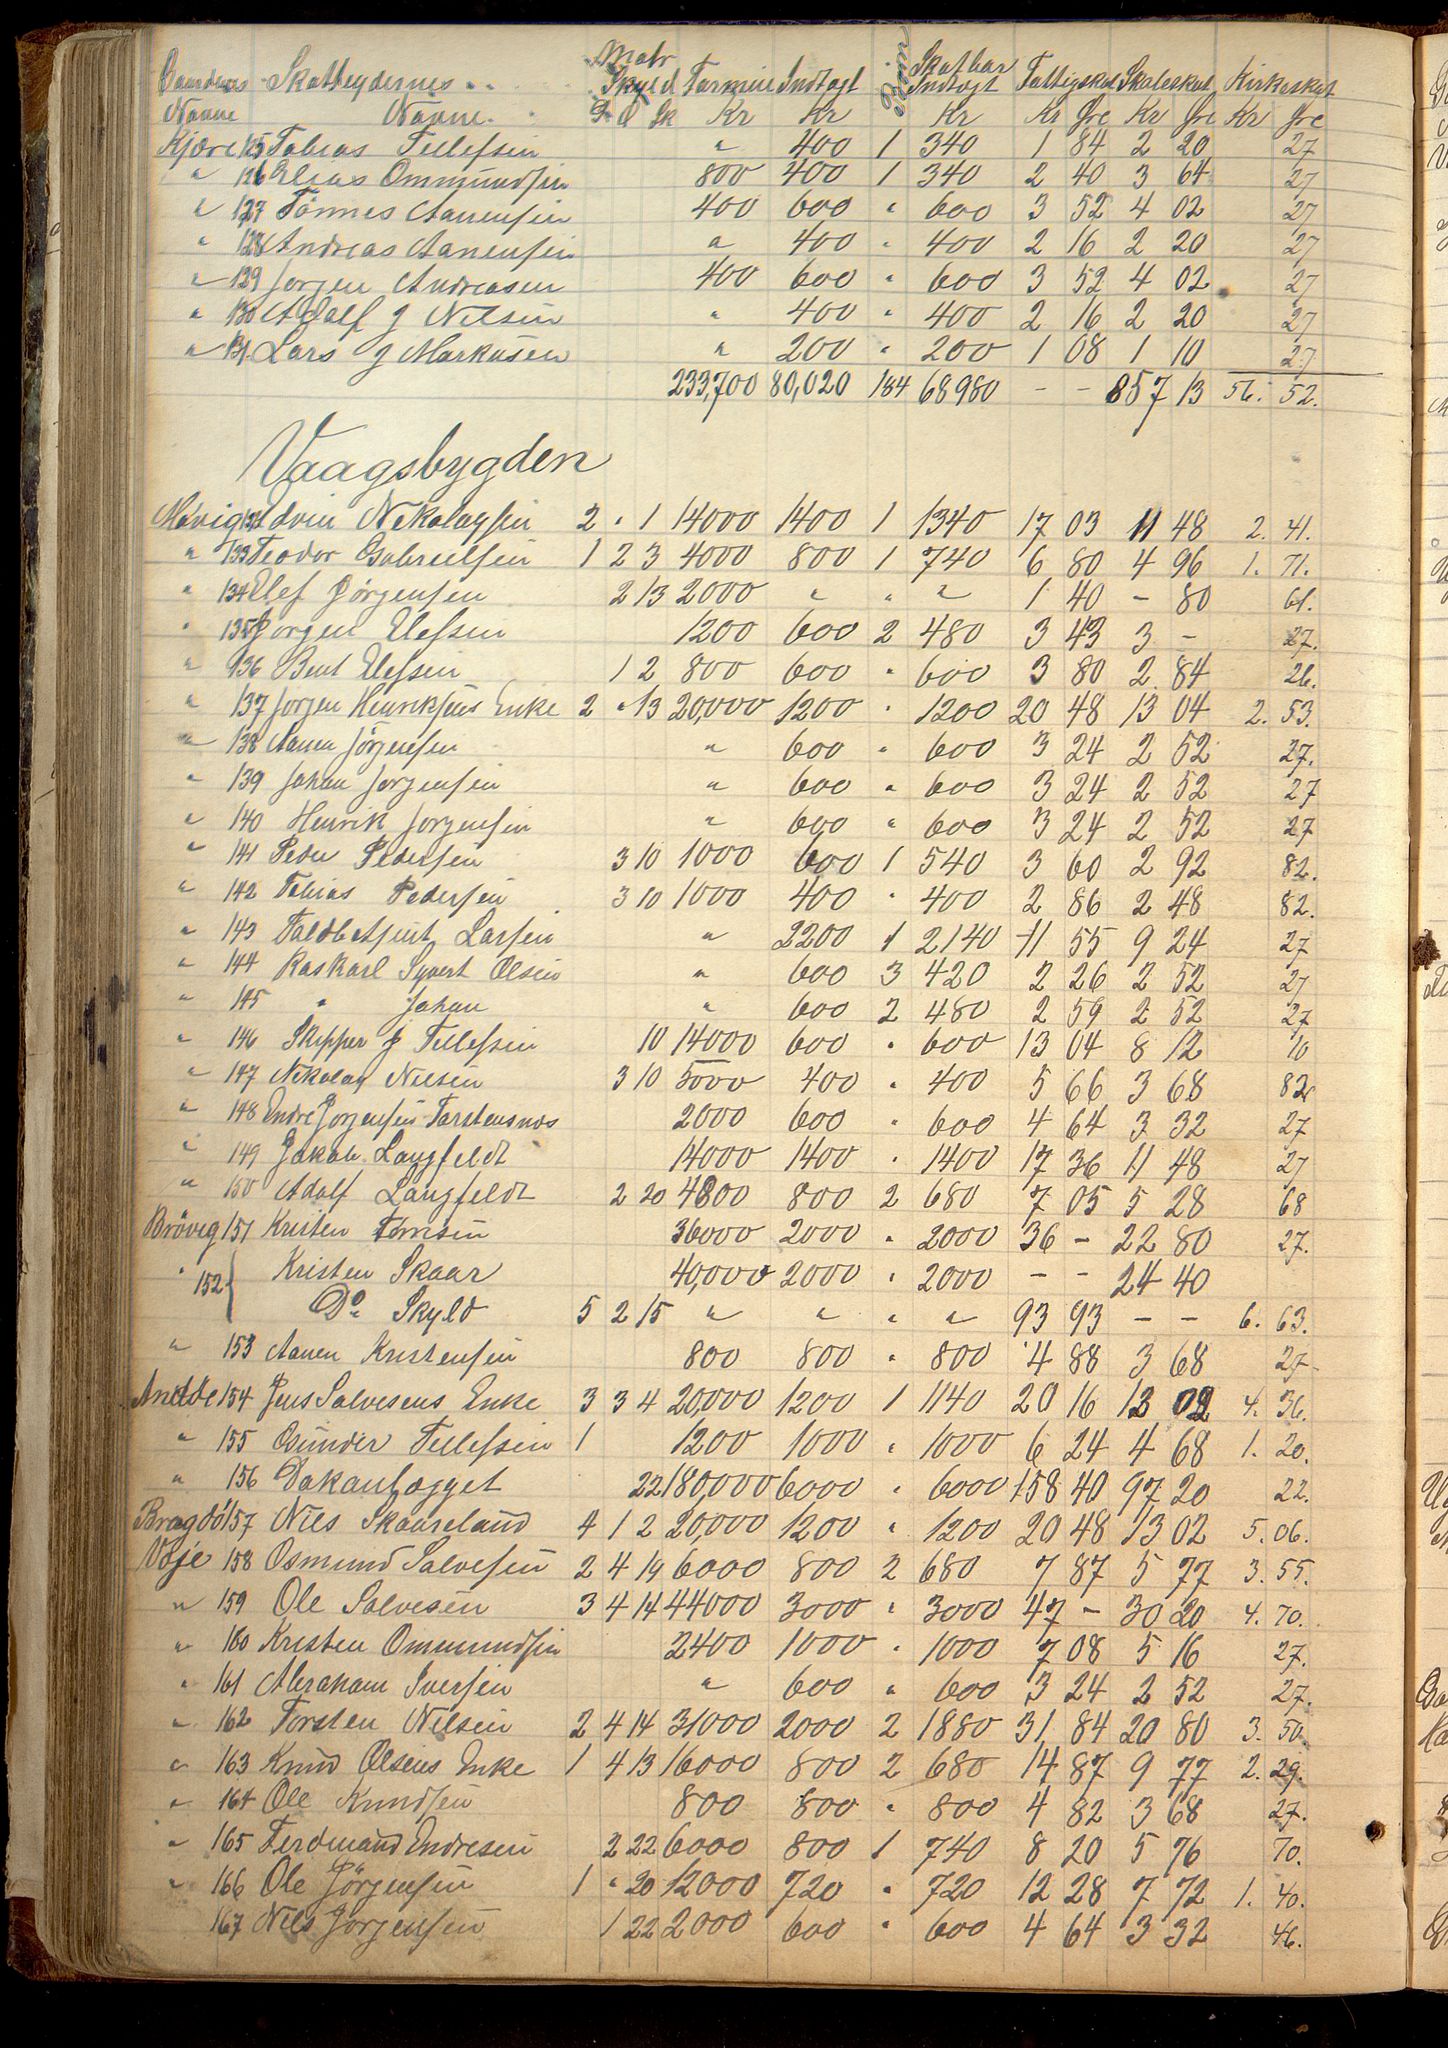 Gaardenes Skatteydernes Matr Skyld Formue Indtægt Skatbar Indtægt Fattigskat Skoleskat Kirkeskat
Navne Navne D O Sk Kr Kr Kr Kr Øre Kr Øre Kr Øre
Kjære 125 Tobias Tellefsen " 400 1 340 1 84 2 20 27
" 126 Elias Ommundsen 800 400 1 340 2 40 3 64 27
" 127 Tönnes Aanensen 400 600 " 600 3 52 4 02 27
" 128 Andreas Aanensen " 400 " 400 2 16 2 20 27
" 129 Jorgen Andreasen 400 600 " 600 3 52 4 02 27
" 130 Adolf J Nilsen " 400 " 400 2 16 2 20 27
" 131 Lars J Markusen " 200 " 200 1 08 1 10 27
233,700 80,020 184 68980 - - 857 13 56. 52.
Vaagsbygden
Møvig 132 Edvin Nikolaysen 2 " 1 14000 1400 1 1340 17 03 11 48 2. 41.
" 133 Teodor Gabrielsen 1 2 3 4000 800 1 740 6 80 4 96 1. 71.
" 134 Elef Jørgensen 2 13 2000 " " " 1 40 - 80 61.
" 135 Jorgen Elefsen 1200 600 2 480 3 43 3 - 27.
" 136 Bent Elefsen 1 2 800 600 " 600 3 80 2 84 26.
" 137 Jorgen Henriksens Enke 2 " 13 20,000 1200 " 1200 20 48 13 04 2. 53.
" 138 Aanen Jörgensen " 600 " 600 3 24 2 52 27.
" 139 Johan Jorgensen " 600 " 600 3 24 2 52 27
" 140 Henrik Jorgensen " 600 " 600 3 24 2 52 27
" 141 Peder Pedersen 3 10 1000 600 1 540 3 60 2 92 82.
" 142 Tobias Pedersen 3 10 1000 400 " 400 2 86 2 48 82.
" 143 Toldbetjent Larsen " 2200 1 2140 11 55 9 24 27
" 144 Raskarl Syvert Olsen " 600 3 420 2 26 2 52 27
" 145 " Johan " 600 2 480 2 59 2 52 27
" 146 Skipper J Tellefsen 10 14000 600 " 600 13 04 8 12 10
" 147 Nikolay Nilsen 3 10 5000 400 " 400 5 66 3 68 82
" 148 Endre Jorgensen Torstensnes 2000 600 " 600 4 64 3 32 27
" 149 Jakob Langfeldt 14000 1400 " 1400 17 36 11 48 27
" 150 Adolf Langfeldt 2 20 4800 800 2 680 7 05 5 28 68
Bröveg 151 Kristen Tomesen 36000 2000 " 2000 36 - 22 80 27.
" 152 { Kristen Skaar 40,000 2000 " 2000 - - 24 40
Do Skyld 5 2 15 " " " " 93 93 - - 6. 63.
" 153 Aanen Kristensen 800 800 " 800 4 88 3 68 27
Andøe 154 Jens Salvesens Enke 3 3 4 20,000 1200 1 1140 20 16 13 02 4. 36.
" 155 Gunder Tellefsen 1 1200 1000 " 1000 6 24 4 68 1. 20.
" 156 Dakanlægget 22 180,000 6000 " 6000 158 40 97 20 22.
Bragdö 157 Nils Skaareland 4 1 2 20,000 1200 " 1200 20 48 13 02 5. 06.
Voje 158 Osmund Salvesen 2 4 19 6000 800 2 680 7 87 5 77 3. 55.
" 159 Ole Salvesen 3 4 14 44000 3000 " 3000 47 - 30 20 4. 70.
" 160 Kristen Ommundsen 2400 1000 " 1000 7 08 5 16 27.
" 161 Abraham Iversen " 600 " 600 3 24 2 52 27.
" 162 Torsten Nilsen 2 4 14 31000 2000 2 1880 31 84 20 80 3. 50.
" 163 Knud Olsens Enke 1 4 13 16000 800 2 680 14 87 9 77 2. 29.
" 164 Ole Knudsen 800 800 " 800 4 82 3 68 27.
" 165 Ferdinand Endresen 2 22 6000 800 1 740 8 20 5 76 70.
" 166 Ole Jörgensen 1 " 20 12000 720 " 720 12 28 7 72 1. 40.
167 Nils Jorgensen 1 22 2000 600 " 600 4 64 3 32 46.